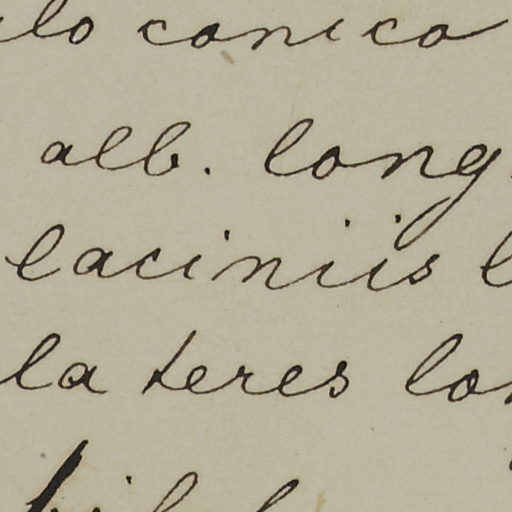 lo conico
alb. long
laciniis l
la teres lon